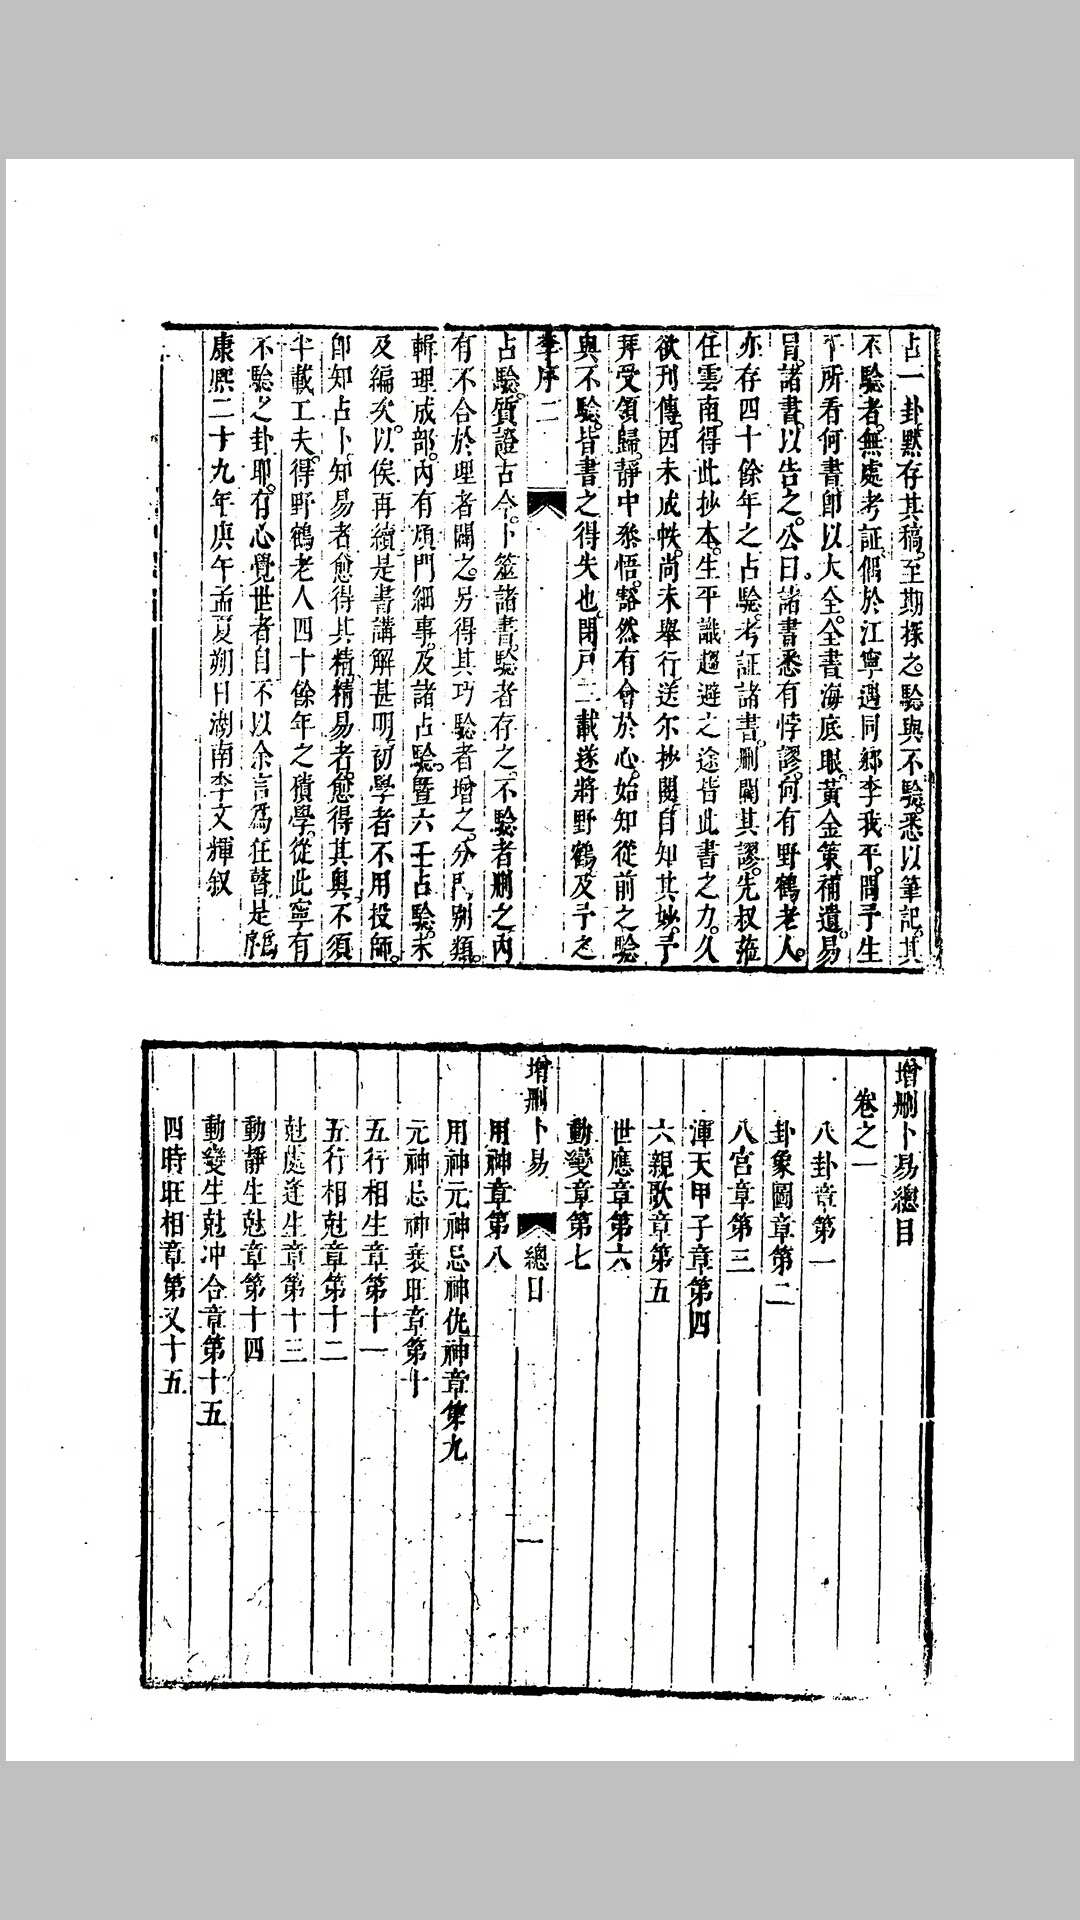 占一卦默存其稿。至期揉之。驗與不驗。悉以筆記。其
不驗者。無處考証。偶於江寧遇同鄉李我平。問予生
平所看何書。卽以大全。全書。海底眼。黃金策。補遺。易
冐。諸書。以告之。公曰。諸書悉有悖謬。何有野鶴老人。
亦存四十餘年之占驗。考証諸書。刪闢其謬。先叔蒞
任雲南。得此抄本。生平識趨避之途。皆此書之力。久
欲刊傳。因未成帙。尚未舉行。送尔抄閱。自知其妙。予
拜受領歸。靜中叅悟。豁然有會於心。始知從前之驗
與不驗。皆書之得失也。閉戸三載。遂將野鶴。及予之
李序 二
占驗。質證古今。卜筮諸書。驗者存之。不驗者刪之。內
有不合於理者闢之。另得其巧驗者增之。分門別類。
輯理成部。內有煩門細事。及諸占驗。暨六壬占驗。未
及編次。以俟再續。是書講解甚明。初學者不用投師。
卽知占卜。知易者愈得其精。精易者。愈得其奧。不須
半載工夫。得野鶴老人四十餘年之積學。從此寧有
不驗之卦耶。有心覺世者。自不以余言爲狂瞽。是爲序
康熙二十九年庚午孟夏朔日湖南李文輝叙
增刪卜易總目
卷之一
八卦章第一
卦象圖章第二
八宮章第三
渾天甲子章第四
六親歌章第五
世應章第六
動變章第七
增刪卜易 總目 一
用神章第八
用神元神忌神仇神章第九
元神忌神衰旺章第十
五行相生章第十一
五行相尅章第十二
尅處逢生章第十三
動靜生尅章第十四
動變生尅冲合章第十五
四時旺相章第又十五